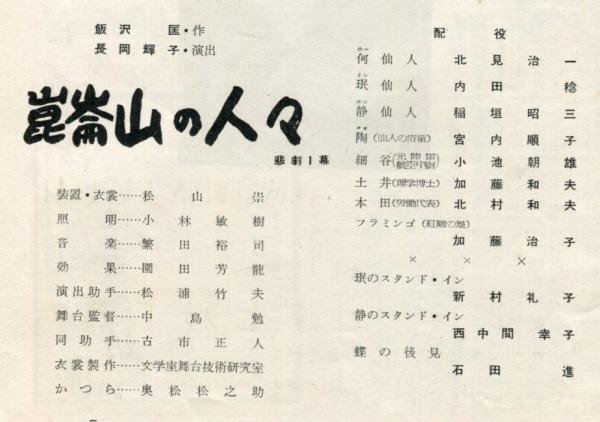 飯沢匡・作
長岡輝子・演出
崑崙山の人々
悲劇1幕
装置・衣裳……松山崇
照明……小林敏樹
音楽……繁田裕司
効果……園田芳龍
演出助手……松浦竹夫
舞台監督……中島勉
同助手……古市正人
衣裳製作……文学座舞台技術研究室
かつら……奥松松之助
配役
何仙人 北見治一
珉仙人 内田稔
静仙人 稲垣昭三
陶(仙人の侍童) 宮内順子
細谷 小池朝雄
土井(理学博士) 加藤和夫
本田(労働代表) 北村和夫
フラミンゴ(紅鶴の雌)
加藤治子
× × ×
珉のスタンド・イン
新村礼子
静のスタンド・イン
西中間幸子
蝶の後見
石田進